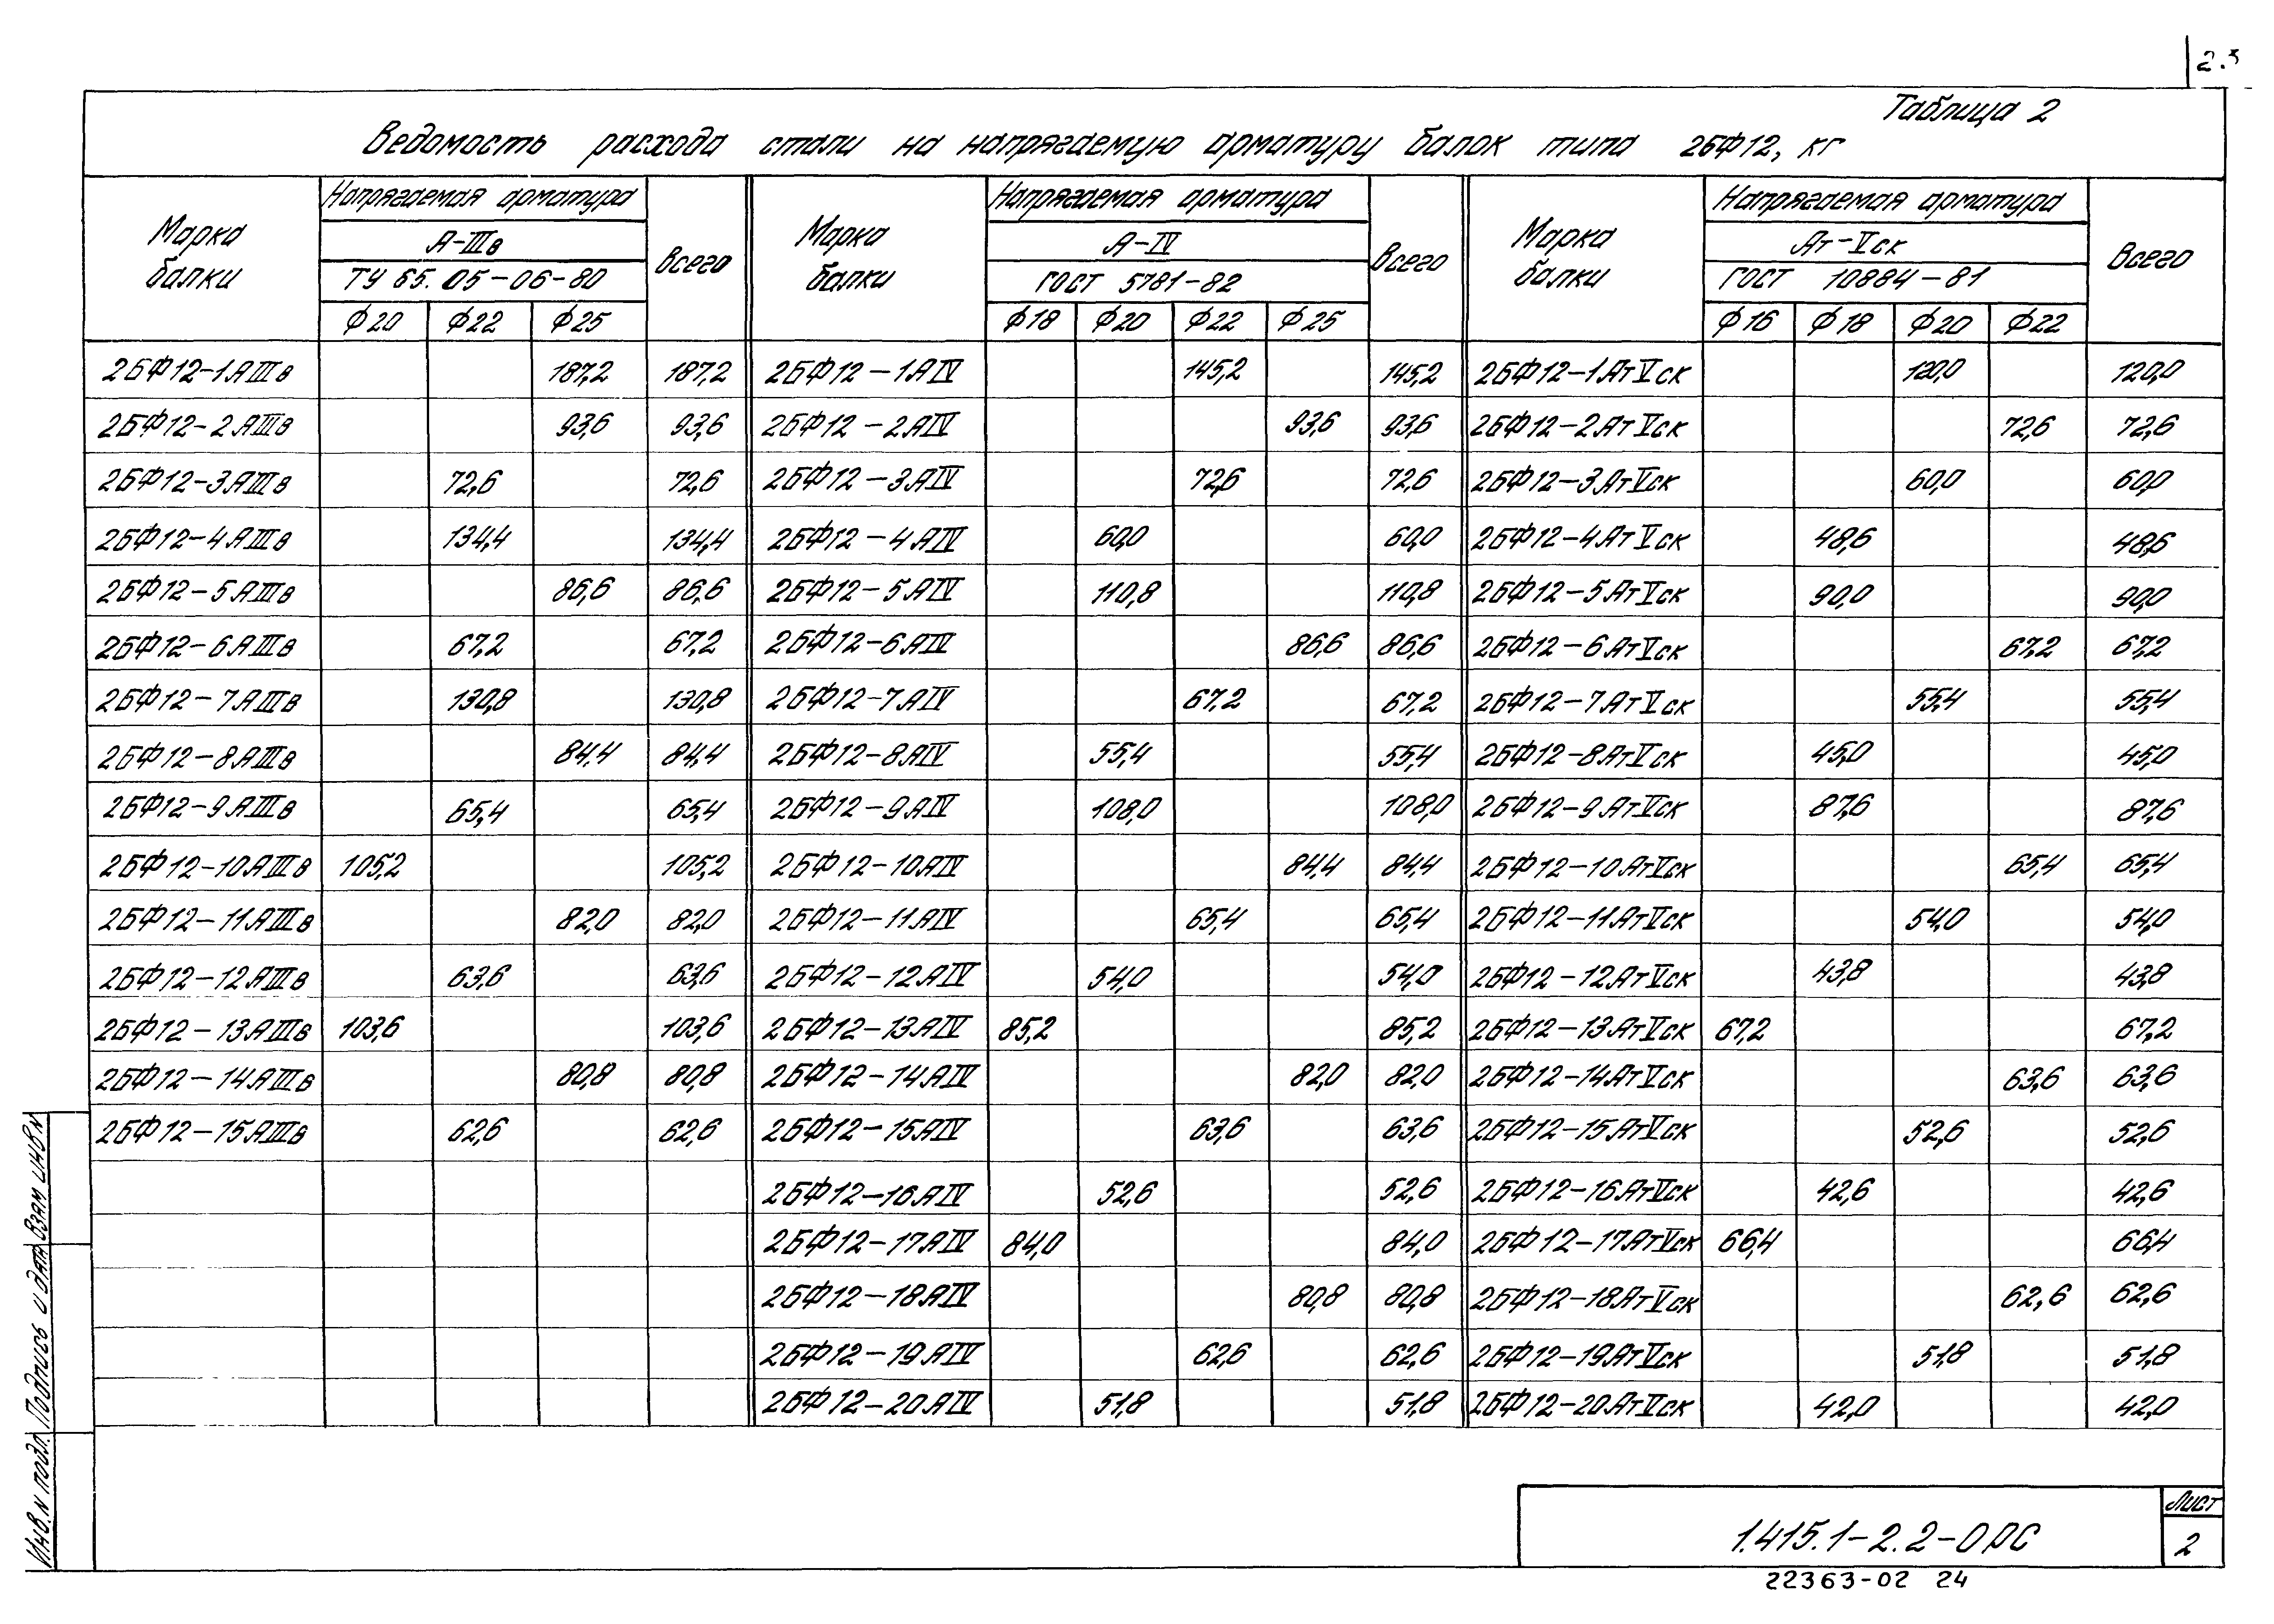 2.3
Таблица 2
Ведомость расхода стали на напрягаемую арматуру балок типа 2БФ12, кг
Марка балки | Напрягаемая арматура | Всего | Марка балки | Напрягаемая арматура | Всего | Марка балки | Напрягаемая арматура | Всего
А-IIIв | А-IV | Ат-Vск
ТУ 65.05-06-80 | ГОСТ 5781-82 | ГОСТ 10884-81
Ф20 Ф22 Ф25 | Ф18 Ф20 Ф22 Ф25 | Ф16 Ф18 Ф20 Ф22
2БФ12-1АIIIв 187,2 187,2 2БФ12-1АIV 145,2 145,2 2БФ12-1АтVск 120,0 120,0
2БФ12-2АIIIв 93,6 93,6 2БФ12-2АIV 93,6 93,6 2БФ12-2АтVск 72,6 72,6
2БФ12-3АIIIв 72,6 72,6 2БФ12-3АIV 72,6 72,6 2БФ12-3АтVск 60,0 60,0
2БФ12-4АIIIв 134,4 134,4 2БФ12-4АIV 60,0 60,0 2БФ12-4АтVск 48,6 48,6
2БФ12-5АIIIв 86,6 86,6 2БФ12-5АIV 110,8 110,8 2БФ12-5АтVск 90,0 90,0
2БФ12-6АIIIв 67,2 67,2 2БФ12-6АIV 86,6 86,6 2БФ12-6АтVск 67,2 67,2
2БФ12-7АIIIв 130,8 130,8 2БФ12-7АIV 67,2 67,2 2БФ12-7АтVск 55,4 55,4
2БФ12-8АIIIв 84,4 84,4 2БФ12-8АIV 55,4 55,4 2БФ12-8АтVск 45,0 45,0
2БФ12-9АIIIв 65,4 65,4 2БФ12-9АIV 108,0 108,0 2БФ12-9АтVск 87,6 87,6
2БФ12-10АIIIв 105,2 105,2 2БФ12-10АIV 84,4 84,4 2БФ12-10АтVск 65,4 65,4
2БФ12-11АIIIв 82,0 82,0 2БФ12-11АIV 65,4 65,4 2БФ12-11АтVск 54,0 54,0
2БФ12-12АIIIв 63,6 63,6 2БФ12-12АIV 54,0 54,0 2БФ12-12АтVск 43,8 43,8
2БФ12-13АIIIв 103,6 103,6 2БФ12-13АIV 85,2 85,2 2БФ12-13АтVск 67,2 67,2
2БФ12-14АIIIв 80,8 80,8 2БФ12-14АIV 82,0 82,0 2БФ12-14АтVск 63,6 63,6
2БФ12-15АIIIв 62,6 62,6 2БФ12-15АIV 63,6 63,6 2БФ12-15АтVск 52,6 52,6
2БФ12-16АIV 52,6 52,6 2БФ12-16АтVск 42,6 42,6
2БФ12-17АIV 84,0 84,0 2БФ12-17АтVск 66,4 66,4
2БФ12-18АIV 80,8 80,8 2БФ12-18АтVск 62,6 62,6
2БФ12-19АIV 62,6 62,6 2БФ12-19АтVск 51,8 51,8
2БФ12-20АIV 51,8 51,8 2БФ12-20АтVск 42,0 42,0
Инв. N подл. Подпись и дата Взам инв N
1.415.1-2.2-0РС
Лист
2
22363-02 24